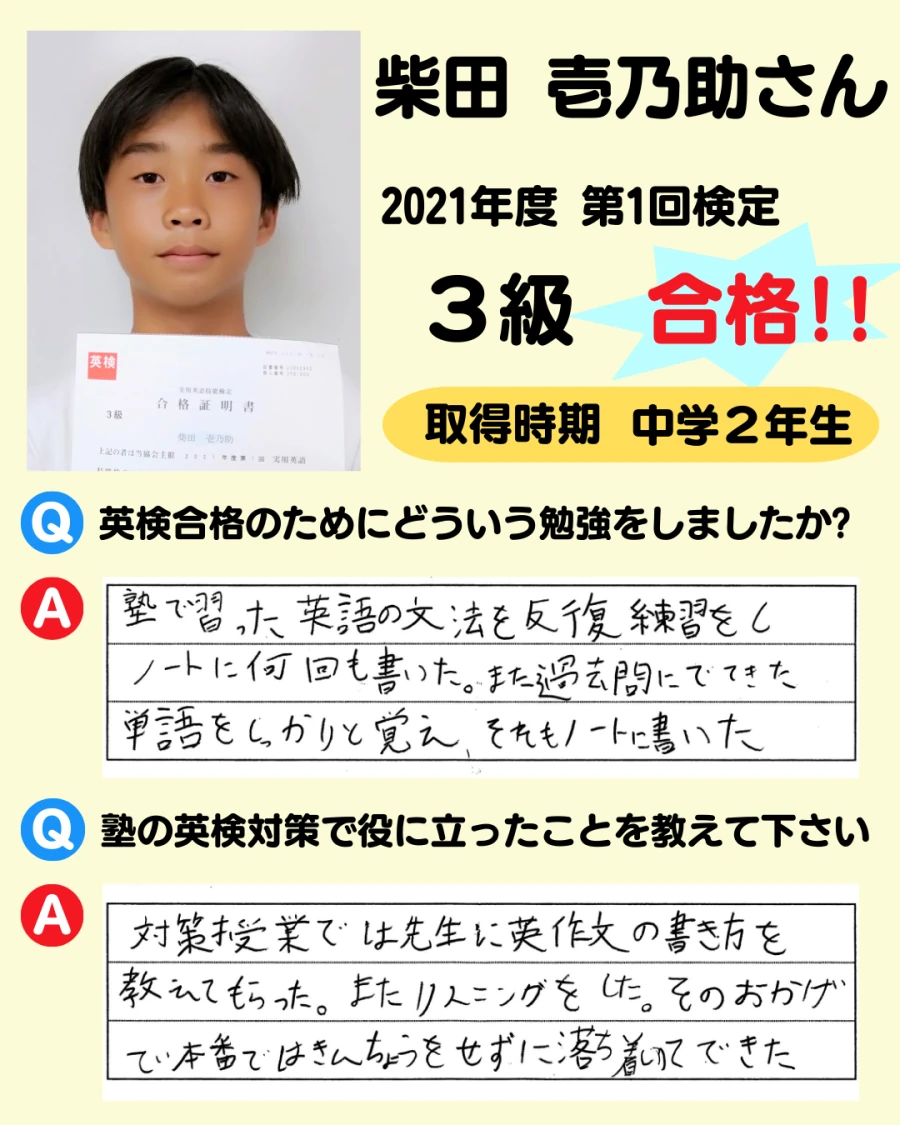 柴田 壱乃助さん
2021年度 第1回検定
3級 合格!!
取得時期 中学2年生
英検
実用英語技能検定
3級
合格証明書
柴田 壱乃助
上記の者は当協会主催 2021年度第1回 実用英語
Q 英検合格のためにどういう勉強をしましたか?
A 塾で習った英語の文法を反復練習をし
ノートに何回も書いた。また過去問にでてきた
単語をしっかりと覚え、それもノートに書いた
Q 塾の英検対策で役に立ったことを教えて下さい
A 対策授業では先生に英作文の書き方を
教えてもらった。またリスニングをした。そのおかげ
で本番ではきんちょうをせずに落ち着いてできた